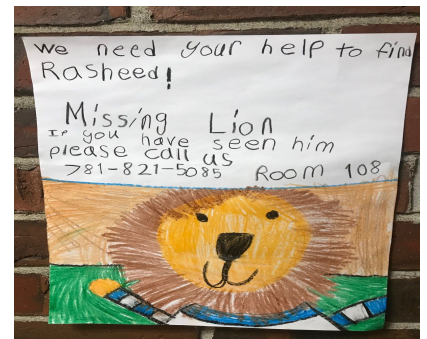 We need your help to find
Rasheed!
Missing Lion
If you have seen him
please call us
781-821-5085 Room 108